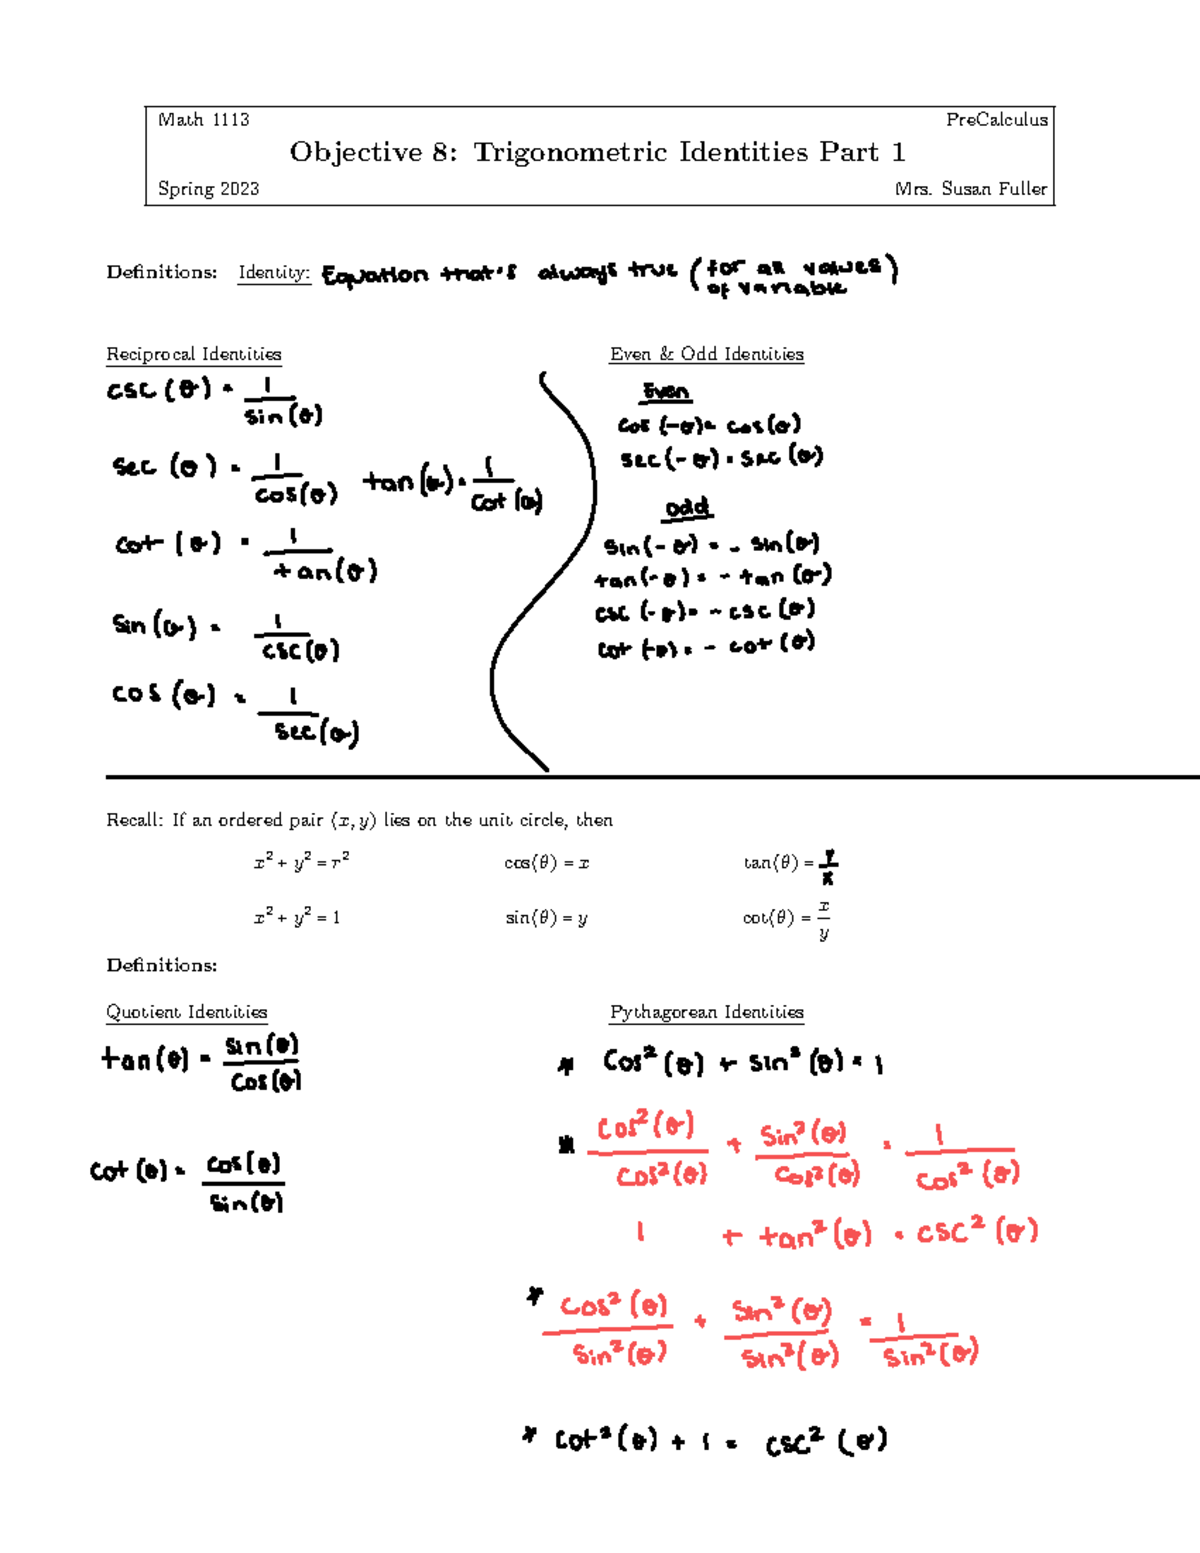 Math 1113 PreCalculus
Objective 8: Trigonometric Identities Part 1
Spring 2023 Mrs. Susan Fuller
Definitions: Identity: Equation that's always true (for all values
of variable)
Reciprocal Identities
csc(θ) = 1/sin(θ)
sec(θ) = 1/cos(θ) tan(θ) = 1/cot(θ)
cot(θ) = 1/tan(θ)
sin(θ) = 1/csc(θ)
cos(θ) = 1/sec(θ)
Even & Odd Identities
Even
cos(-θ) = cos(θ)
sec(-θ) = sec(θ)
odd
sin(-θ) = - sin(θ)
tan(-θ) = - tan(θ)
csc(-θ) = - csc(θ)
cot(-θ) = - cot(θ)
Recall: If an ordered pair (x, y) lies on the unit circle, then
x² + y² = r² cos(θ) = x tan(θ) = y/x
x² + y² = 1 sin(θ) = y cot(θ) = x/y
Definitions:
Quotient Identities
tan(θ) = sin(θ)/cos(θ)
cot(θ) = cos(θ)/sin(θ)
Pythagorean Identities
* cos²(θ) + sin²(θ) = 1
* cos²(θ)/cos²(θ) + sin²(θ)/cos²(θ) = 1/cos²(θ)
1 + tan²(θ) = csc²(θ)
* cos²(θ)/sin²(θ) + sin²(θ)/sin²(θ) = 1/sin²(θ)
* cot²(θ) + 1 = csc²(θ)